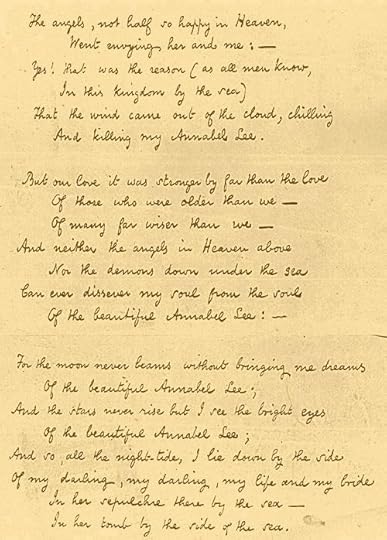 The angels, not half so happy in Heaven,
Went envying her and me: —
Yes! that was the reason (as all men know,
In this kingdom by the sea)
That the wind came out of the cloud, chilling
And killing my Annabel Lee.
But our love it was stronger by far than the love
Of those who were older than we —
Of many far wiser than we —
And neither the angels in Heaven above
Nor the demons down under the sea
Can ever dissever my soul from the soul
Of the beautiful Annabel Lee: —
For the moon never beams without bringing me dreams
Of the beautiful Annabel Lee;
And the stars never rise but I see the bright eyes
Of the beautiful Annabel Lee;
And so, all the night-tide, I lie down by the side
Of my darling, my darling, my life and my bride
In her sepulchre there by the sea —
In her tomb by the side of the sea.